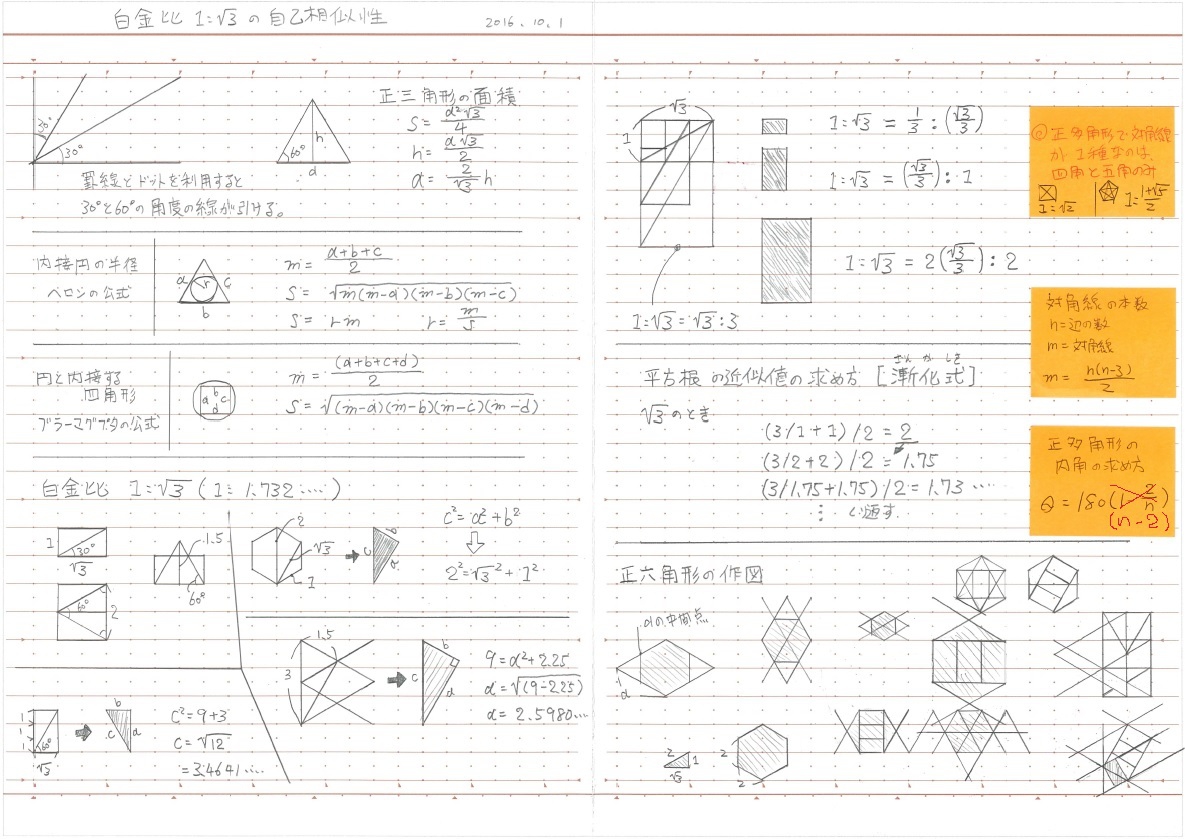 白金比 1:√3 の自己相似性
2016.10.1
30°
30°
罫線とドットを利用すると
30°と60°の角度の線が引ける。
60°
h
a
正三角形の面積
S = a²√3/4
h = a√3/2
a = 2/√3 h
内接円の半径
ヘロンの公式
a
r
c
b
m = a+b+c/2
S = √m(m-a)(m-b)(m-c)
S = rm
r = m/S
円と内接する
四角形
ブラーマグプタの公式
a b c
d
m = (a+b+c+d)/2
S = √(m-a)(m-b)(m-c)(m-d)
白金比 1:√3 (1:1.732....)
1
30°
√3
1.5
60°
60°
2
2
√3
1
b
c
a
c²=a²+b²
2²=√3²+1²
1.5
3
b
c
a
9=a²+2.25
a=√(9-2.25)
a=2.5980...
1
1
1
60°
√3
b
c
a
c²=9+3
c=√12
=3.4641....
√3
1
1:√3=√3:3
1:√3 = 1/3:(√3/3)
1:√3 = (√3/3):1
1:√3 = 2(√3/3):2
正多角形で対角線
が1種なのは、
四角と五角のみ
1:√2
1:1+√5/2
対角線の本数
n=辺の数
m=対角線
m = n(n-3)/2
正多角形の
内角の求め方
θ=180(1-2/n)
(n-2)
ざん か しき
平方根の近似値の求め方 [漸化式]
√3のとき
(3/1+1)/2=2
(3/2+2)/2=1.75
(3/1.75+1.75)/2=1.73....
くり返す
正六角形の作図
aの中間点
a
2
1
√3
2
2